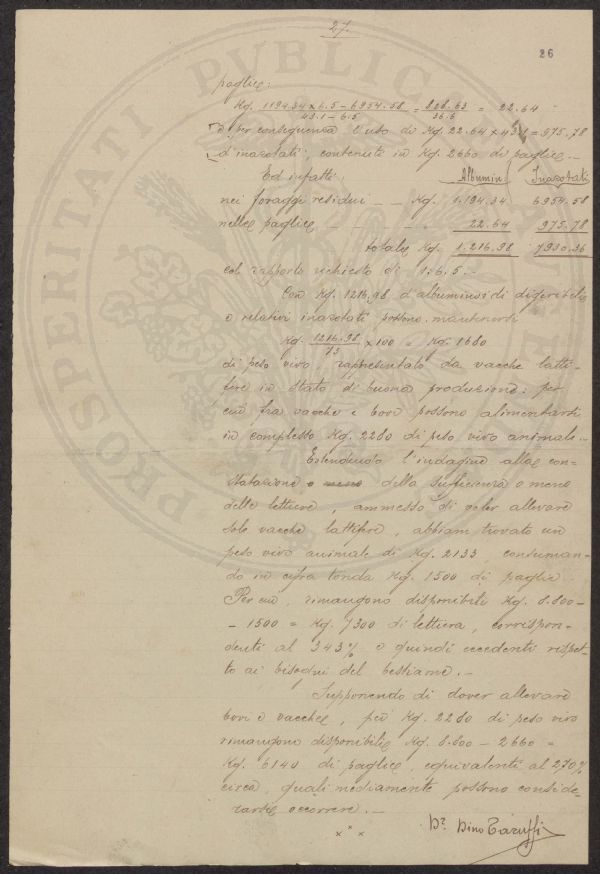 27.
26
paglie:
Kg. 1194.34 x 6.5 – 6954.58 / 43.1 – 6.5 = 828.63 / 36.6 = 22.64
e per conseguenza l'uso di Kg. 22.64 x 43.1 = 975.78
d'inazotati, contenuti in Kg. 2660 di paglie. –
Ed infatti: Albumin. Inazotati
nei foraggi residui – – Kg. 1.194.34 6954.58
nelle paglie – – – – 22.64 975.78
totale Kg. 1.216.98 7930.36
col rapporto richiesto di 1:6,5. –
Con Kg. 1216,98 d'albuminoidi digeribili
e relativi inazotati possono mantenersi
Kg. 1216.98 / 73 x 100 = Kg. 1680
di peso vivo, rappresentato da vacche latti-
fere in stato di buona produzione: per
cui fra vacche e bovi possono alimentarsi
in complesso Kg. 2280 di peso vivo animale. –
Estendendo l'indagine alla con-
statazione o meno della sufficienza o meno
delle lettiere, ammesso di voler allevare
sole vacche lattifere, abbiam trovato un
peso vivo animale di Kg. 2133, consuman-
do in cifra tonda Kg. 1500 di paglia.
Per cui, rimangono disponibili Kg. 8.800 –
– 1500 = Kg. 7300 di lettiera, corrispon-
denti al 343% e quindi eccedenti rispet-
to ai bisogni del bestiame. –
Supponendo di dover allevare
bovi e vacche, per Kg. 2280 di peso vivo
rimangono disponibili Kg. 8.800 – 2660 =
Kg. 6140 di paglie, equivalenti al 270%
circa, quali mediamente possono conside-
rarsi occorrere. –
x x x
Dr. Dino Taruffi
PROSPERITATI PVBLICAE